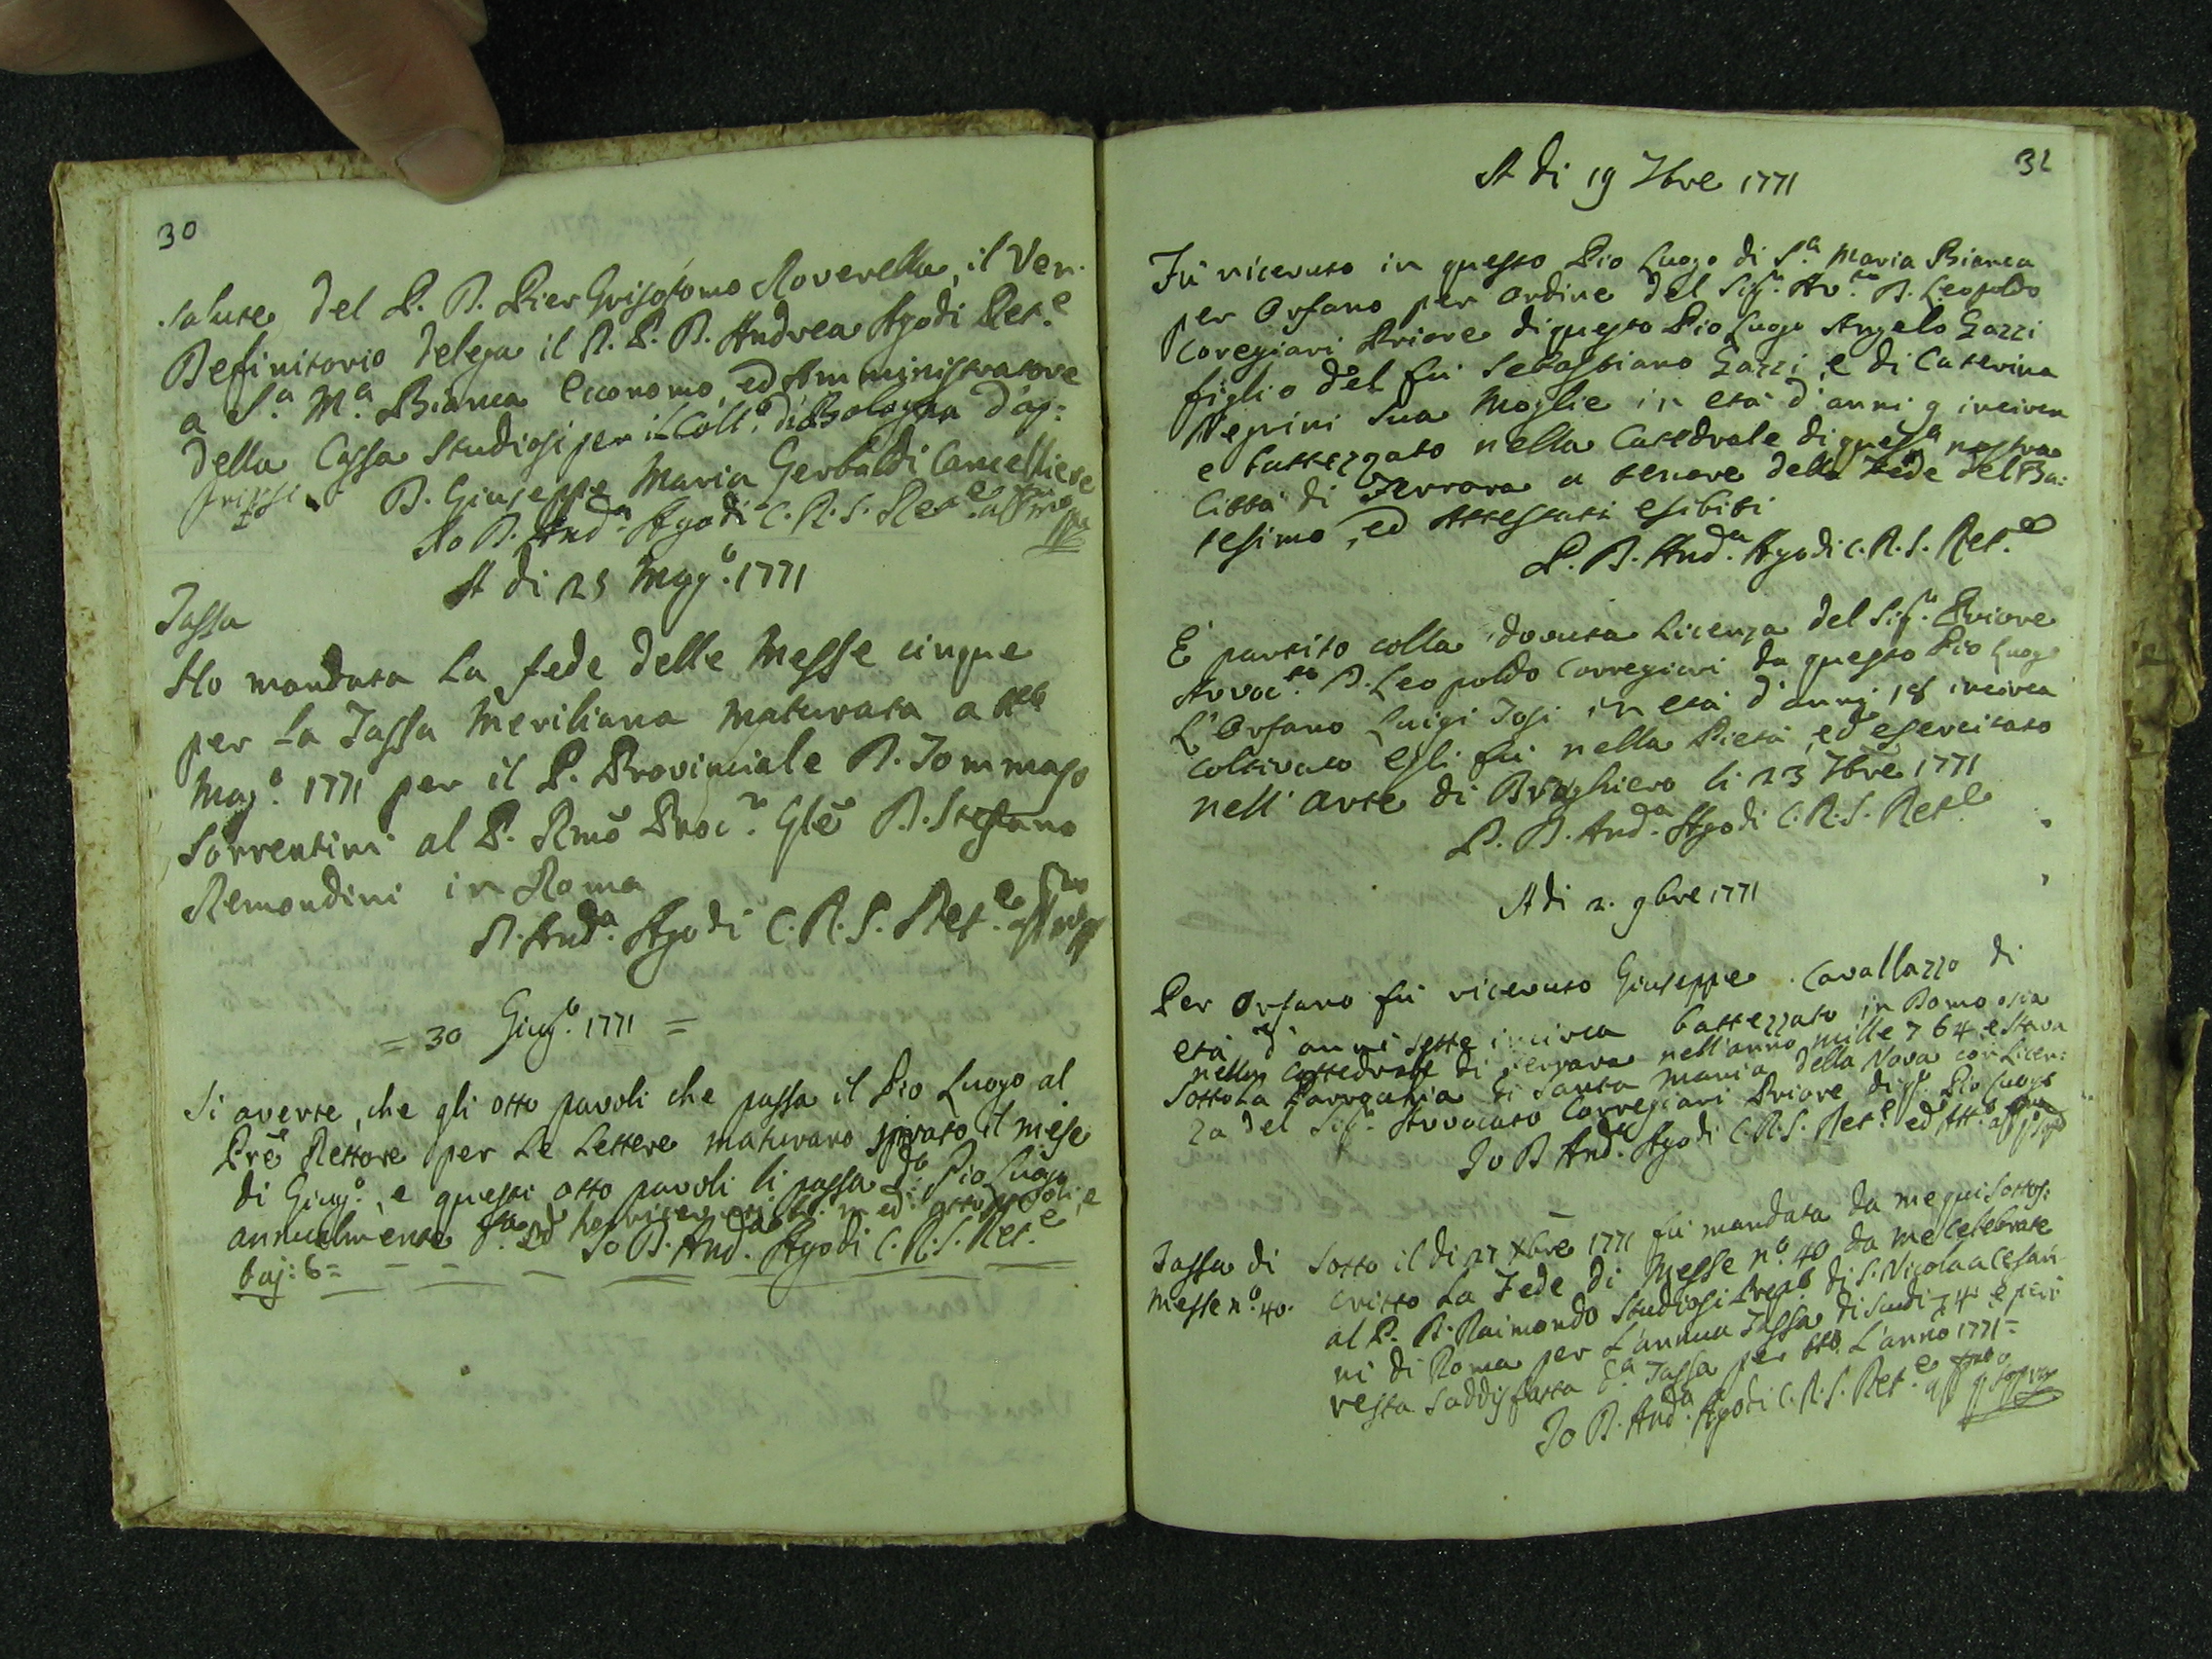 30
salute del P. D. Pier Grisostomo Roverella, il Ven.
Definitorio delega il R. P. D. Andrea Agodi Ret.e
a S.a M.a Bianca Economo, ed Amministratore
della Cassa Studiosi per il Coll.o di Bologna d'ap:
D. Giuseppe Maria Gerbaldi Cancelliere
Io D. And.a Agodi C. R. S. Ret.e aff.mo
A di 25 Magg.o 1771
Tassa
Ho mandata La fede delle Messe cinque
per La Tassa Meriliana maturata a
Mag.o 1771 per il P. Provinciale D. Tommaso
Sorrentini al P. Rmō Proc.r Glē D. Stefano
Remondini in Roma
D. And.a Agodi C. R. S. Ret.e
= 30 Giug.o 1771 =
Si averte, che gli otto pavoli che passa il Pio Luogo al
Prē Rettore per Le Lettere maturano spirato il mese
di Giug.o, e questi otto pavoli li passa d.o Pio Luogo
annualmente ed ho ricevuti li med.i otto pavoli, e
baj: 6 =
Io D. And.a Agodi C. R. S. Ret.e
31
A di 19 7bre 1771
Fù ricevuto in questo Pio Luogo di S.a Maria Bianca
per Orfano per ordine del Sig.r Av.to D. Leopoldo
Coregiari Priore di questo Pio Luogo Angelo Gazzi
figlio del fù Sebastiano Gazzi, e di Caterina
Negrini sua Moglie in età d'anni 9 incirca
e battezzato nella Catedrale di questa nostra
Città di Ferrara a tenore della Fede del Ba:
tesimo, ed Attestati esibiti
P. D. And.a Agodi C. R. S. Ret.e
È partito colla dovuta Licenza del Sig.r Priore
Avvoc.to D. Leopoldo Corregiari da questo Pio Luogo
L'Orfano Luigi Tosi in età d'anni 18 incirca
coltivato egli fù nella Pietà, ed esercitato
nell'arte di Braghiero li 23 7bre 1771
P. D. And.a Agodi C. R. S. Ret.e
A di 2. 9bre 1771
Per Orfano fù ricevuto Giuseppe Cavallazzo di
età d'anni sette incirca battezzato in Domo osia
nella Cattedrale di Ferrara nell'anno mille 764 e stava
sotto La Parrochia di Santa Maria della Nova con Licen:
za del Sig.r Avvocato Corregiari Priore di q.o Pio Luogo
Io D And.a Agodi C. R. S. Ret.e ed Att.o
Tassa di
Messe n.o 40.
Sotto il di 27 Xbre 1771 fù mandata da me qui sottos:
critto La Fede di Messe n.o 40 da me celebrate
al P. D. Raimondo Studiosi Prep.o di S. Nicola a Cesari
ni di Roma per L'annua Tassa di scudi 4 e però
resta saddisfatta d.a Tassa per L'anno 1771 =
Io D. And.a Agodi C. R. S. Ret.e aff.o q. sopra